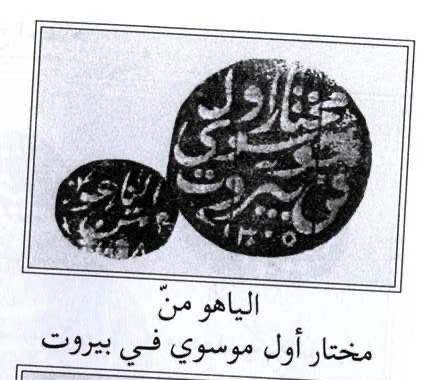 مختار أول
موسوي
في بيروت
١٣٠٥
الياهو منّ
مختار أول موسوي في بيروت